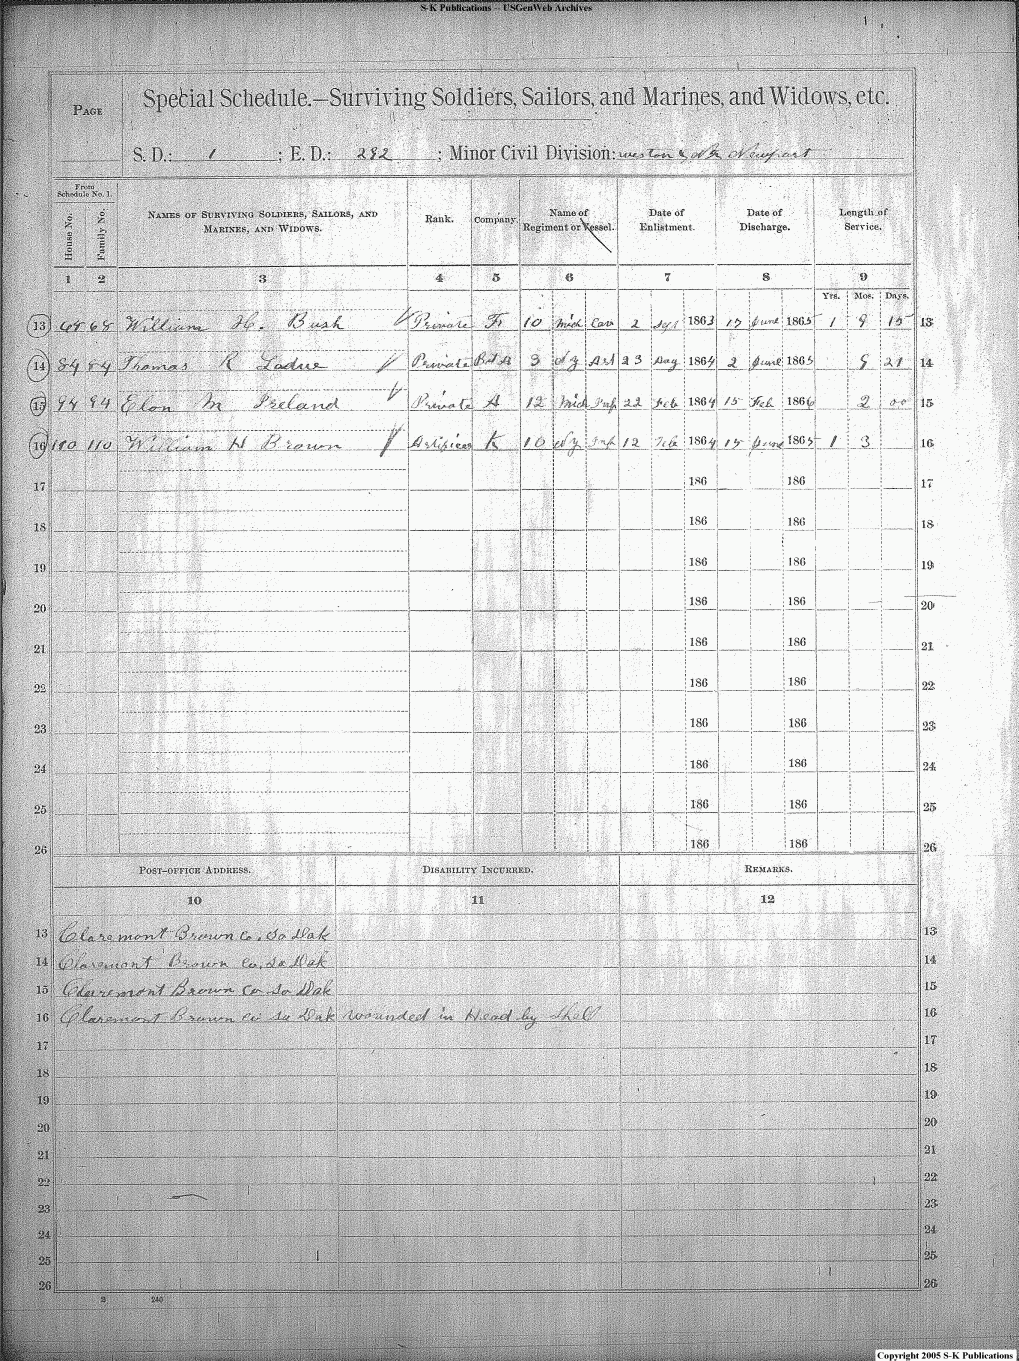 S-K Publications – USGenWeb Archives
PAGE
Special Schedule.—Surviving Soldiers, Sailors, and Marines, and Widows, etc.
S. D.: 1 ; E. D.: 292 ; Minor Civil Division: Weston & Newport
From Schedule No. 1.
House No. Family No. NAMES OF SURVIVING SOLDIERS, SAILORS, AND MARINES, AND WIDOWS. Rank. Company. Name of Regiment or Vessel. Date of Enlistment. Date of Discharge. Length of Service.
1 2 3 4 5 6 7 8 9
Yrs. Mos. Days.
13 68 68 William H. Bush Private F 10 Mich Cav 2 1863 17 June 1865 1 9 15 13
14 84 84 Thomas R Ladue Private Bat 3 N Y Art 23 Aug 1864 2 June 1865 9 21 14
15 94 94 Elon M Ireland Private A 12 Mich Inf 22 Feb 1864 15 Feb 1866 2 00 15
16 110 110 William H Brown Artificer K 10 N Y Inf 12 Feb 1864 15 June 1865 1 3 16
17 186 186 17
18 186 186 18
19 186 186 19
20 186 186 20
21 186 186 21
22 186 186 22
23 186 186 23
24 186 186 24
25 186 186 25
26 186 186 26
POST-OFFICE ADDRESS. DISABILITY INCURRED. REMARKS.
10 11 12
13 Claremont Brown Co. So Dak 13
14 Claremont Brown Co. So Dak 14
15 Claremont Brown Co So Dak 15
16 Claremont Brown Co So Dak wounded in Head by Shell 16
17 17
18 18
19 19
20 20
21 21
22 22
23 23
24 24
25 25
26 26
240
Copyright 2005 S-K Publications